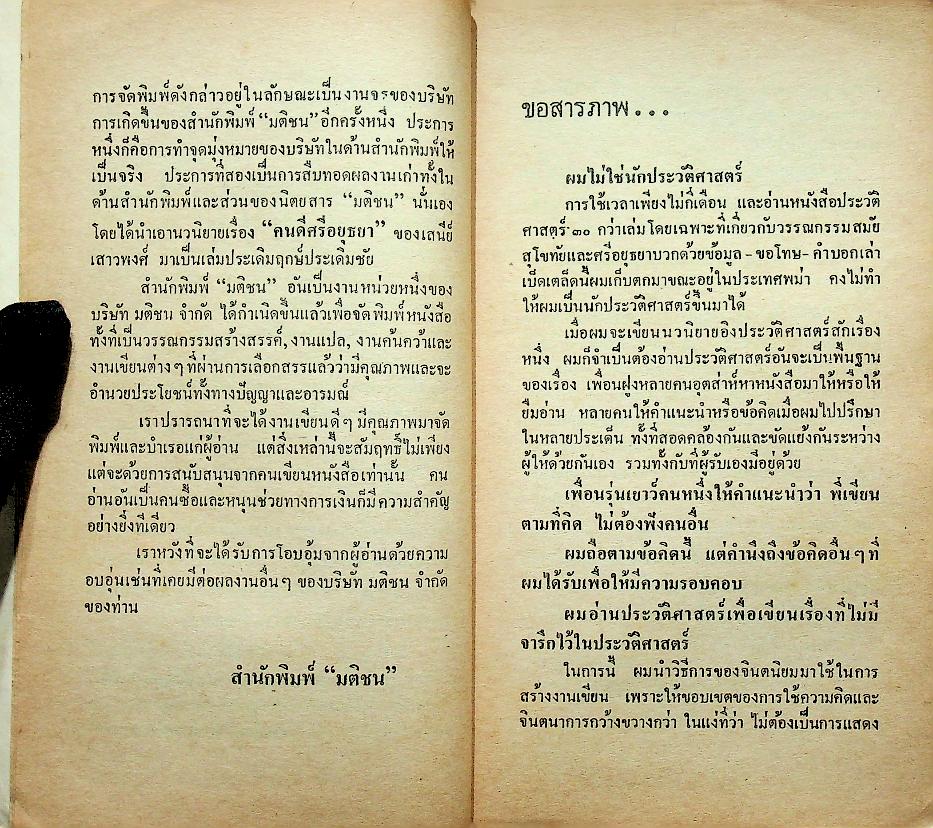 การจัดพิมพ์ดังกล่าวอยู่ในลักษณะเป็นงานจรของบริษัท
การเกิดขึ้นของสำนักพิมพ์ “มติชน” อีกครั้งหนึ่ง ประการ
หนึ่งก็คือการทำจุดมุ่งหมายของบริษัทในด้านสำนักพิมพ์ให้
เป็นจริง ประการที่สองเป็นการสืบทอดผลงานเก่าทั้งใน
ด้านสำนักพิมพ์และส่วนของนิตยสาร “มติชน” นั่นเอง
โดยได้นำเอานวนิยายเรื่อง “คนดีศรีอยุธยา” ของเสนีย์
เสาวพงศ์ มาเป็นเล่มประเดิมฤกษ์ประเดิมชัย
สำนักพิมพ์ “มติชน” อันเป็นงานหน่วยหนึ่งของ
บริษัท มติชน จำกัด ได้กำเนิดขึ้นแล้วเพื่อจัดพิมพ์หนังสือ
ทั้งที่เป็นวรรณกรรมสร้างสรรค์, งานแปล, งานค้นคว้าและ
งานเขียนต่างๆ ที่ผ่านการเลือกสรรแล้วว่ามีคุณภาพและจะ
อำนวยประโยชน์ทั้งทางปัญญาและอารมณ์
เราปรารถนาที่จะได้งานเขียนดีๆ มีคุณภาพมาจัด
พิมพ์และบำเรอแก่ผู้อ่าน แต่สิ่งเหล่านี้จะสัมฤทธิ์ไม่เพียง
แต่จะด้วยการสนับสนุนจากคนเขียนหนังสือเท่านั้น คน
อ่านอันเป็นคนซื้อและหนุนช่วยทางการเงินก็มีความสำคัญ
อย่างยิ่งทีเดียว
เราหวังที่จะได้รับการโอบอุ้มจากผู้อ่านด้วยความ
อบอุ่นเช่นที่เคยมีต่อผลงานอื่นๆ ของบริษัท มติชน จำกัด
ของท่าน
สำนักพิมพ์ “มติชน”
ขอสารภาพ...
ผมไม่ใช่นักประวัติศาสตร์
การใช้เวลาเพียงไม่กี่เดือน และอ่านหนังสือประวัติ
ศาสตร์ ๓๐ กว่าเล่มโดยเฉพาะที่เกี่ยวกับวรรณกรรมสมัย
สุโขทัยและศรีอยุธยาบวกด้วยข้อมูล - ขอโทษ - คำบอกเล่า
เบ็ดเตล็ดนี้ผมเก็บตกมาขณะอยู่ในประเทศพม่า คงไม่ทำ
ให้ผมเป็นนักประวัติศาสตร์ขึ้นมาได้
เมื่อผมจะเขียนนวนิยายอิงประวัติศาสตร์สักเรื่อง
หนึ่ง ผมก็จำเป็นต้องอ่านประวัติศาสตร์อันจะเป็นพื้นฐาน
ของเรื่อง เพื่อนฝูงหลายคนอุตส่าห์หาหนังสือมาให้หรือให้
ยืมอ่าน หลายคนให้คำแนะนำหรือข้อคิดเมื่อผมไปปรึกษา
ในหลายประเด็น ทั้งที่สอดคล้องกันและขัดแย้งกันระหว่าง
ผู้ให้ด้วยกันเอง รวมทั้งกับที่ผู้รับเองมีอยู่ด้วย
เพื่อนรุ่นเยาว์คนหนึ่งให้คำแนะนำว่า พี่เขียน
ตามที่คิด ไม่ต้องฟังคนอื่น
ผมถือตามข้อคิดนี้ แต่คำนึงถึงข้อคิดอื่นๆ ที่
ผมได้รับเพื่อให้มีความรอบคอบ
ผมอ่านประวัติศาสตร์เพื่อเขียนเรื่องที่ไม่มี
จารึกไว้ในประวัติศาสตร์
ในการนี้ ผมนำวิธีการของจินตนิยมมาใช้ในการ
สร้างงานเขียน เพราะให้ขอบเขตของการใช้ความคิดและ
จินตนาการกว้างขวางกว่า ในแง่ที่ว่า ไม่ต้องเป็นการแสดง